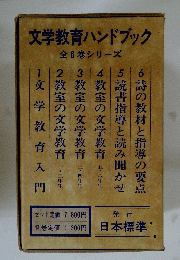 文学教育ハンドブック
全6巻シリーズ
1 文学教育入門
2 教室の文学教育
3 教室の文学教育
4 教室の文学教育
5 読書指導と読み聞かせ
6 詩の教材と指導の要点
セット定価 7,800円
各巻定価 1,300円
発行
日本標準